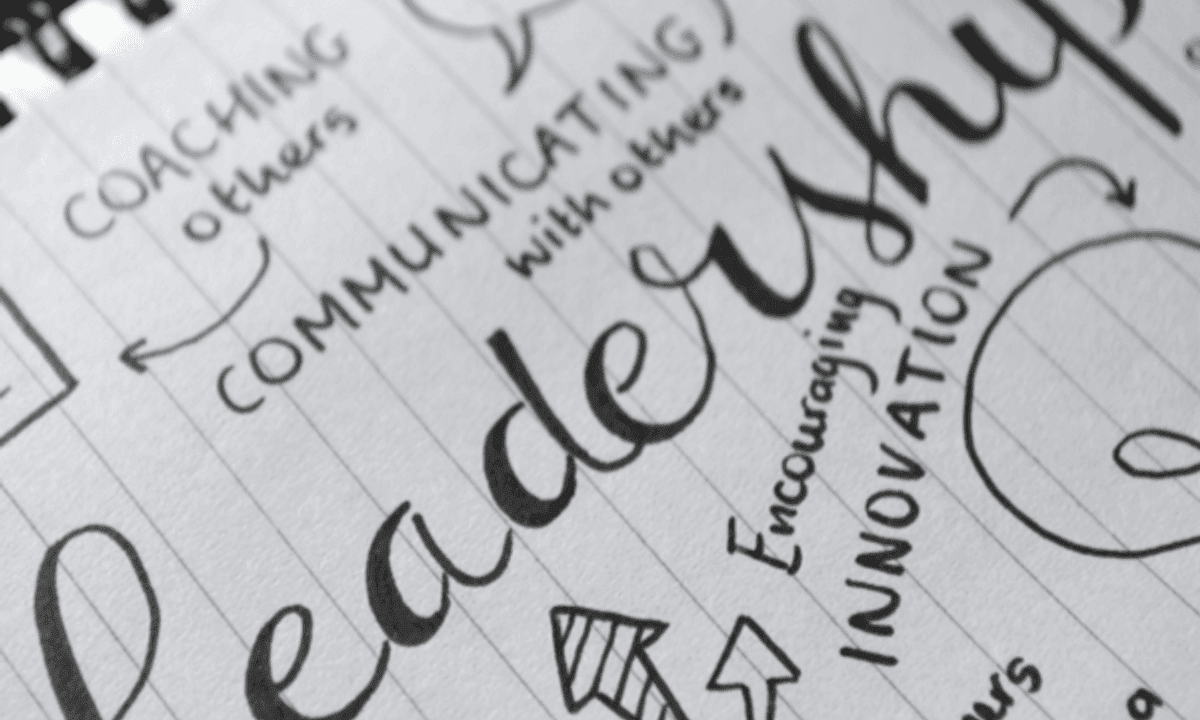 COACHING
others
COMMUNICATING
with others
leadership
Encouraging
INNOVATION